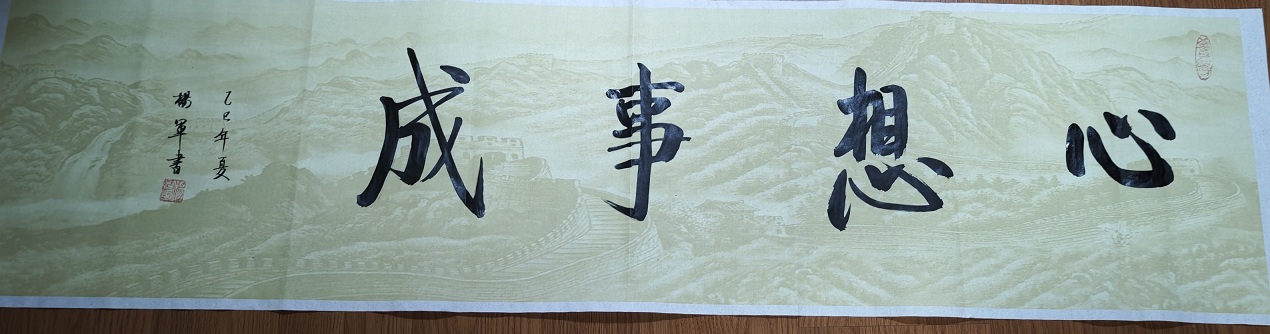 心想事成
乙巳年夏
楊軍書